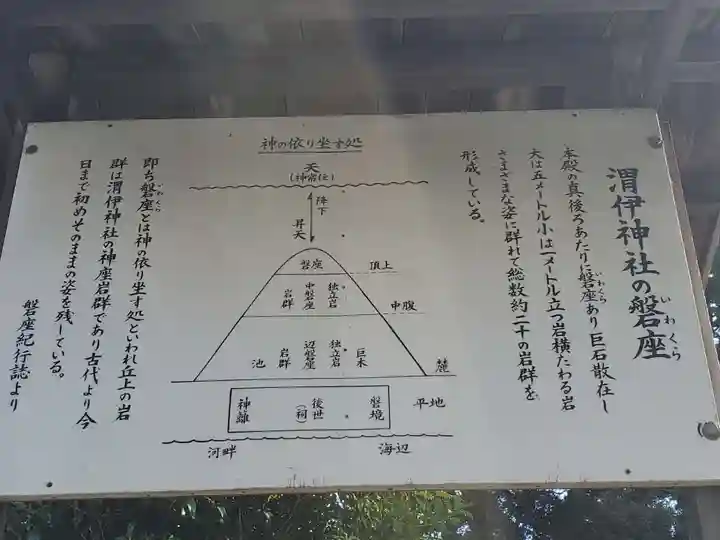 渭伊神社の磐座
いわくら
本殿の真後ろあたりに磐座あり巨石散在し
いわくら
大は五メートル小は一メートル立つ岩横たわる岩
さまざまな姿に群れて総数約二十の岩群を
形成している。
神の依り坐す処
天
(神常住)
降下
昇天
磐座
頂上
独立岩
中磐座
岩群
中腹
巨木
独立岩
辺磐座
岩群
池
麓
磐境
後世
(祠)
神籬
平地
河畔
海辺
即ち磐座とは神の依り坐す処といわれ丘上の岩
いわくら
群は渭伊神社の神座岩群であり古代より今
日まで初めそのままの姿を残している。
磐座紀行誌より